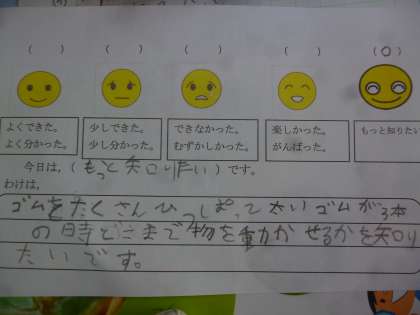 ( ) ( ) ( ) ( ) (○)
よくできた。 少しできた。 できなかった。 楽しかった。 もっと知りたい
よく分かった。 少し分かった。 むずかしかった。 がんばった。
今日は,(もっと知りたい)です。
わけは,
ゴムをたくさんひっぱって太いゴムが3本
の時どこまで物を動かせるかを知り
たいです。